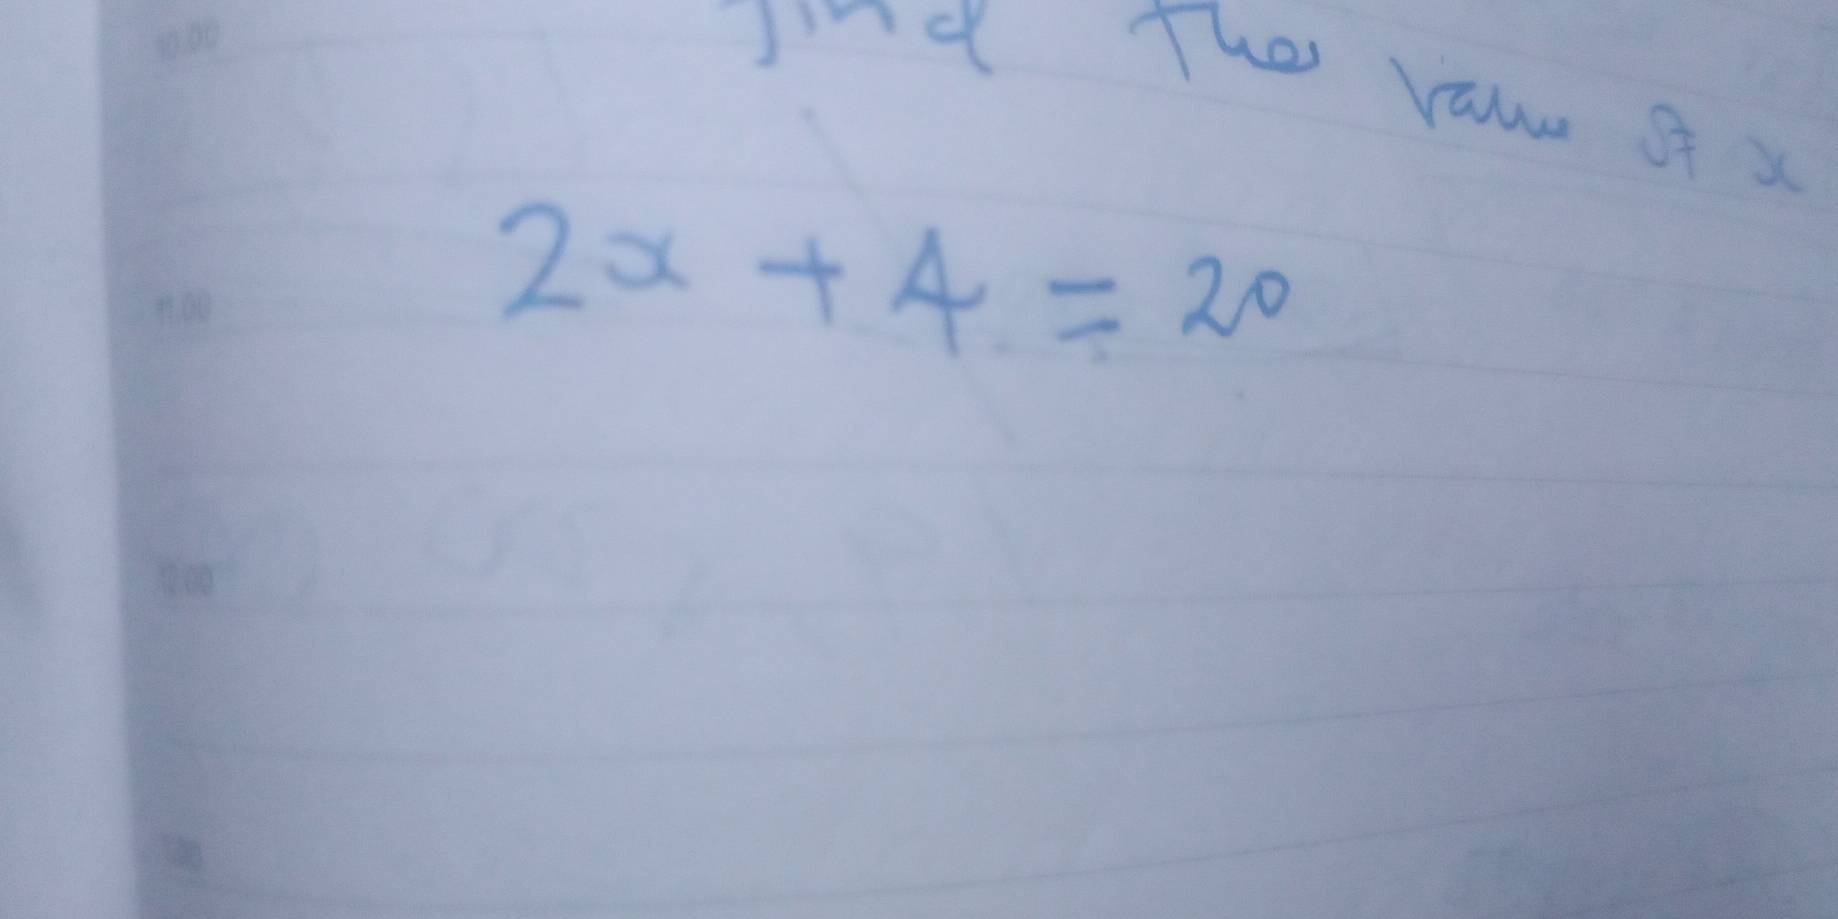 10.00
find the value of x
2x + 4 = 20
11.00
12.00